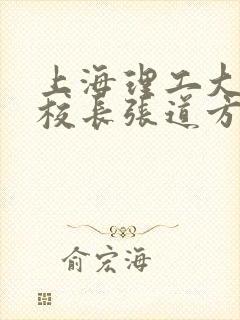 上海理工大
校长张道方
俞宏海